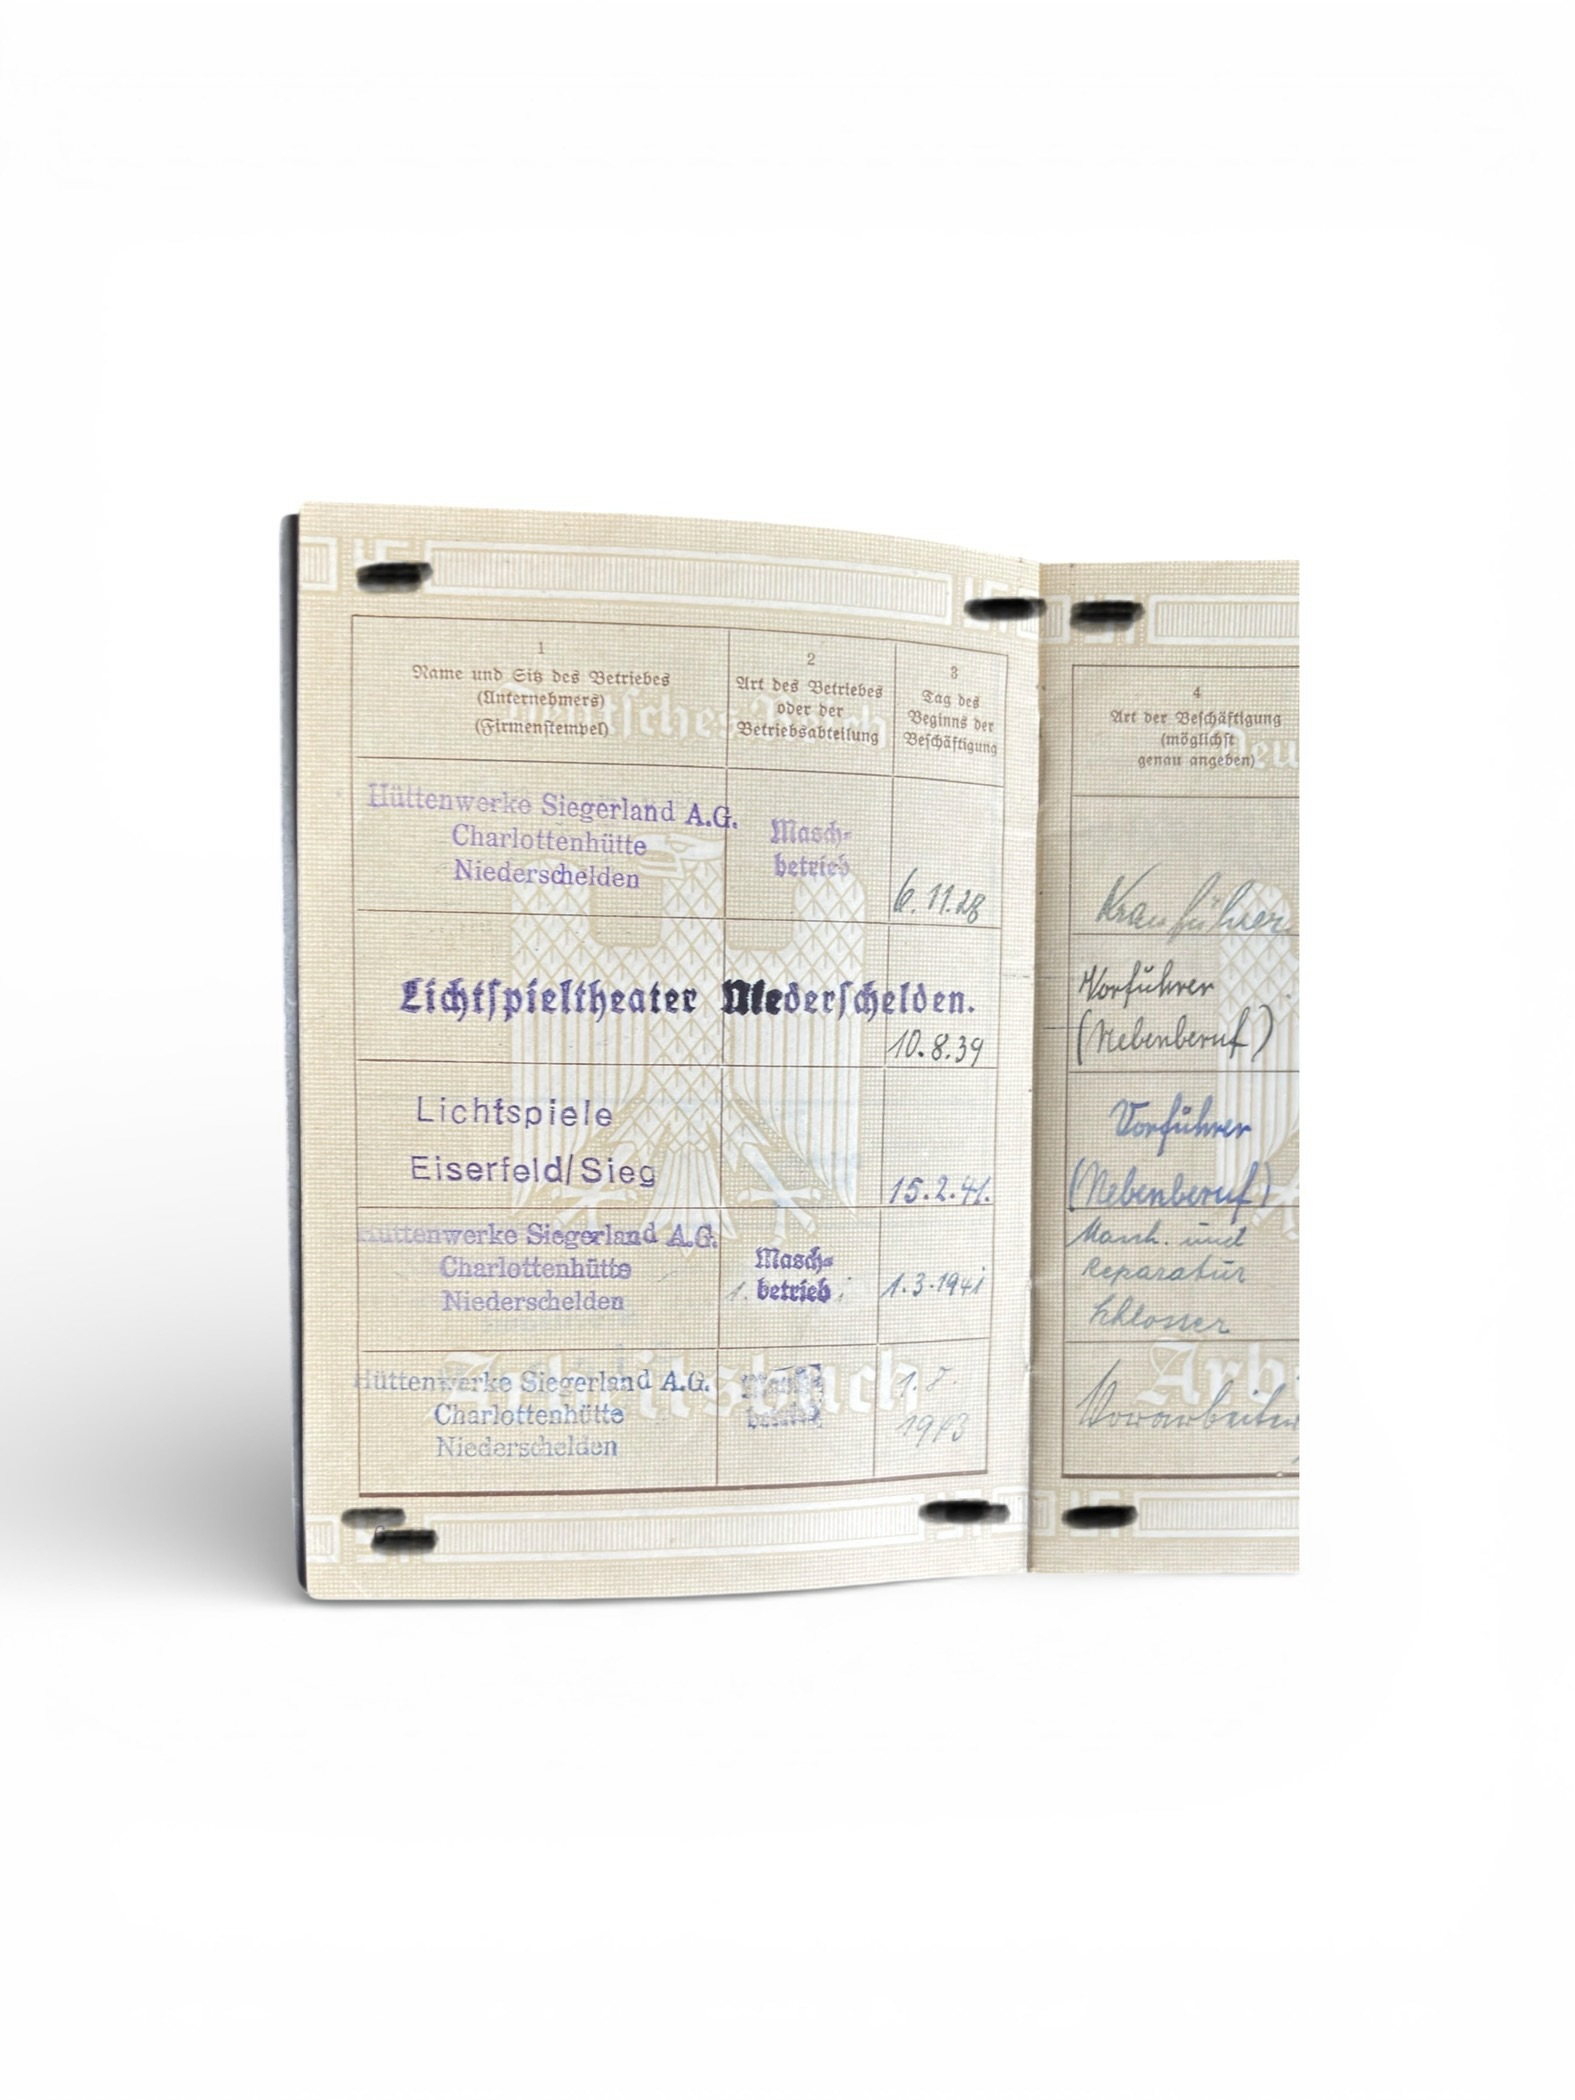 1
Name und Sitz des Betriebes
(Unternehmers)
(Firmenstempel)
2
Art des Betriebes
oder der
Betriebsabteilung
3
Tag des
Beginns der
Beschäftigung
4
Art der Beschäftigung
(möglichst
genau angeben)
Hüttenwerke Siegerland A.G.
Charlottenhütte
Niederschelden
Masch-
betrieb
6.11.28
Kranführer
Lichtspieltheater Niederschelden.
10.8.39
Vorführer
(Nebenberuf)
Lichtspiele
Eiserfeld/Sieg
15.2.41.
Vorführer
(Nebenberuf)
Hüttenwerke Siegerland A.G.
Charlottenhütte
Niederschelden
Masch-
betrieb
1.3.1941
Masch. und
Reparatur
Schlosser
Hüttenwerke Siegerland A.G.
Charlottenhütte
Niederschelden
Masch-
betrieb
1.
1943
Vorarbeiter
Deutsches Reich
Arbeitsbuch